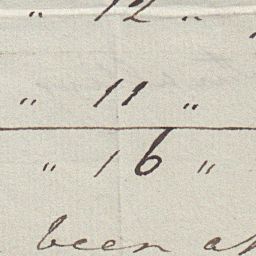 " 12 "
" 11 "
" 16 "
been at